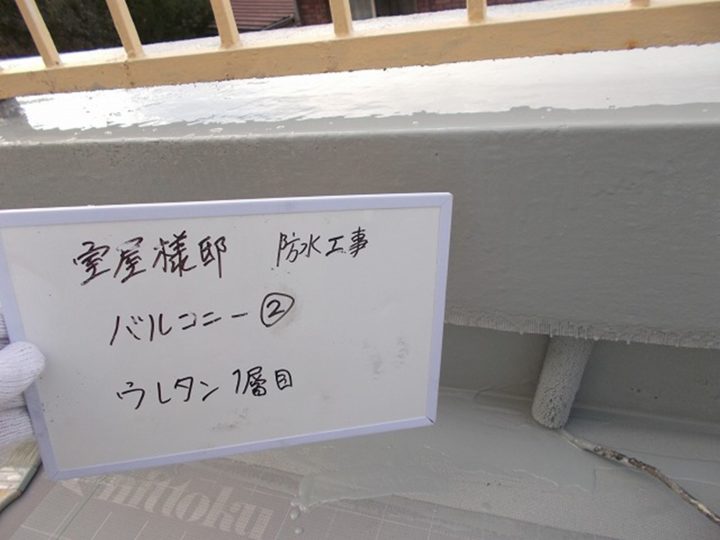 室屋様邸 防水工事
バルコニー②
ウレタン1層目
nittoku